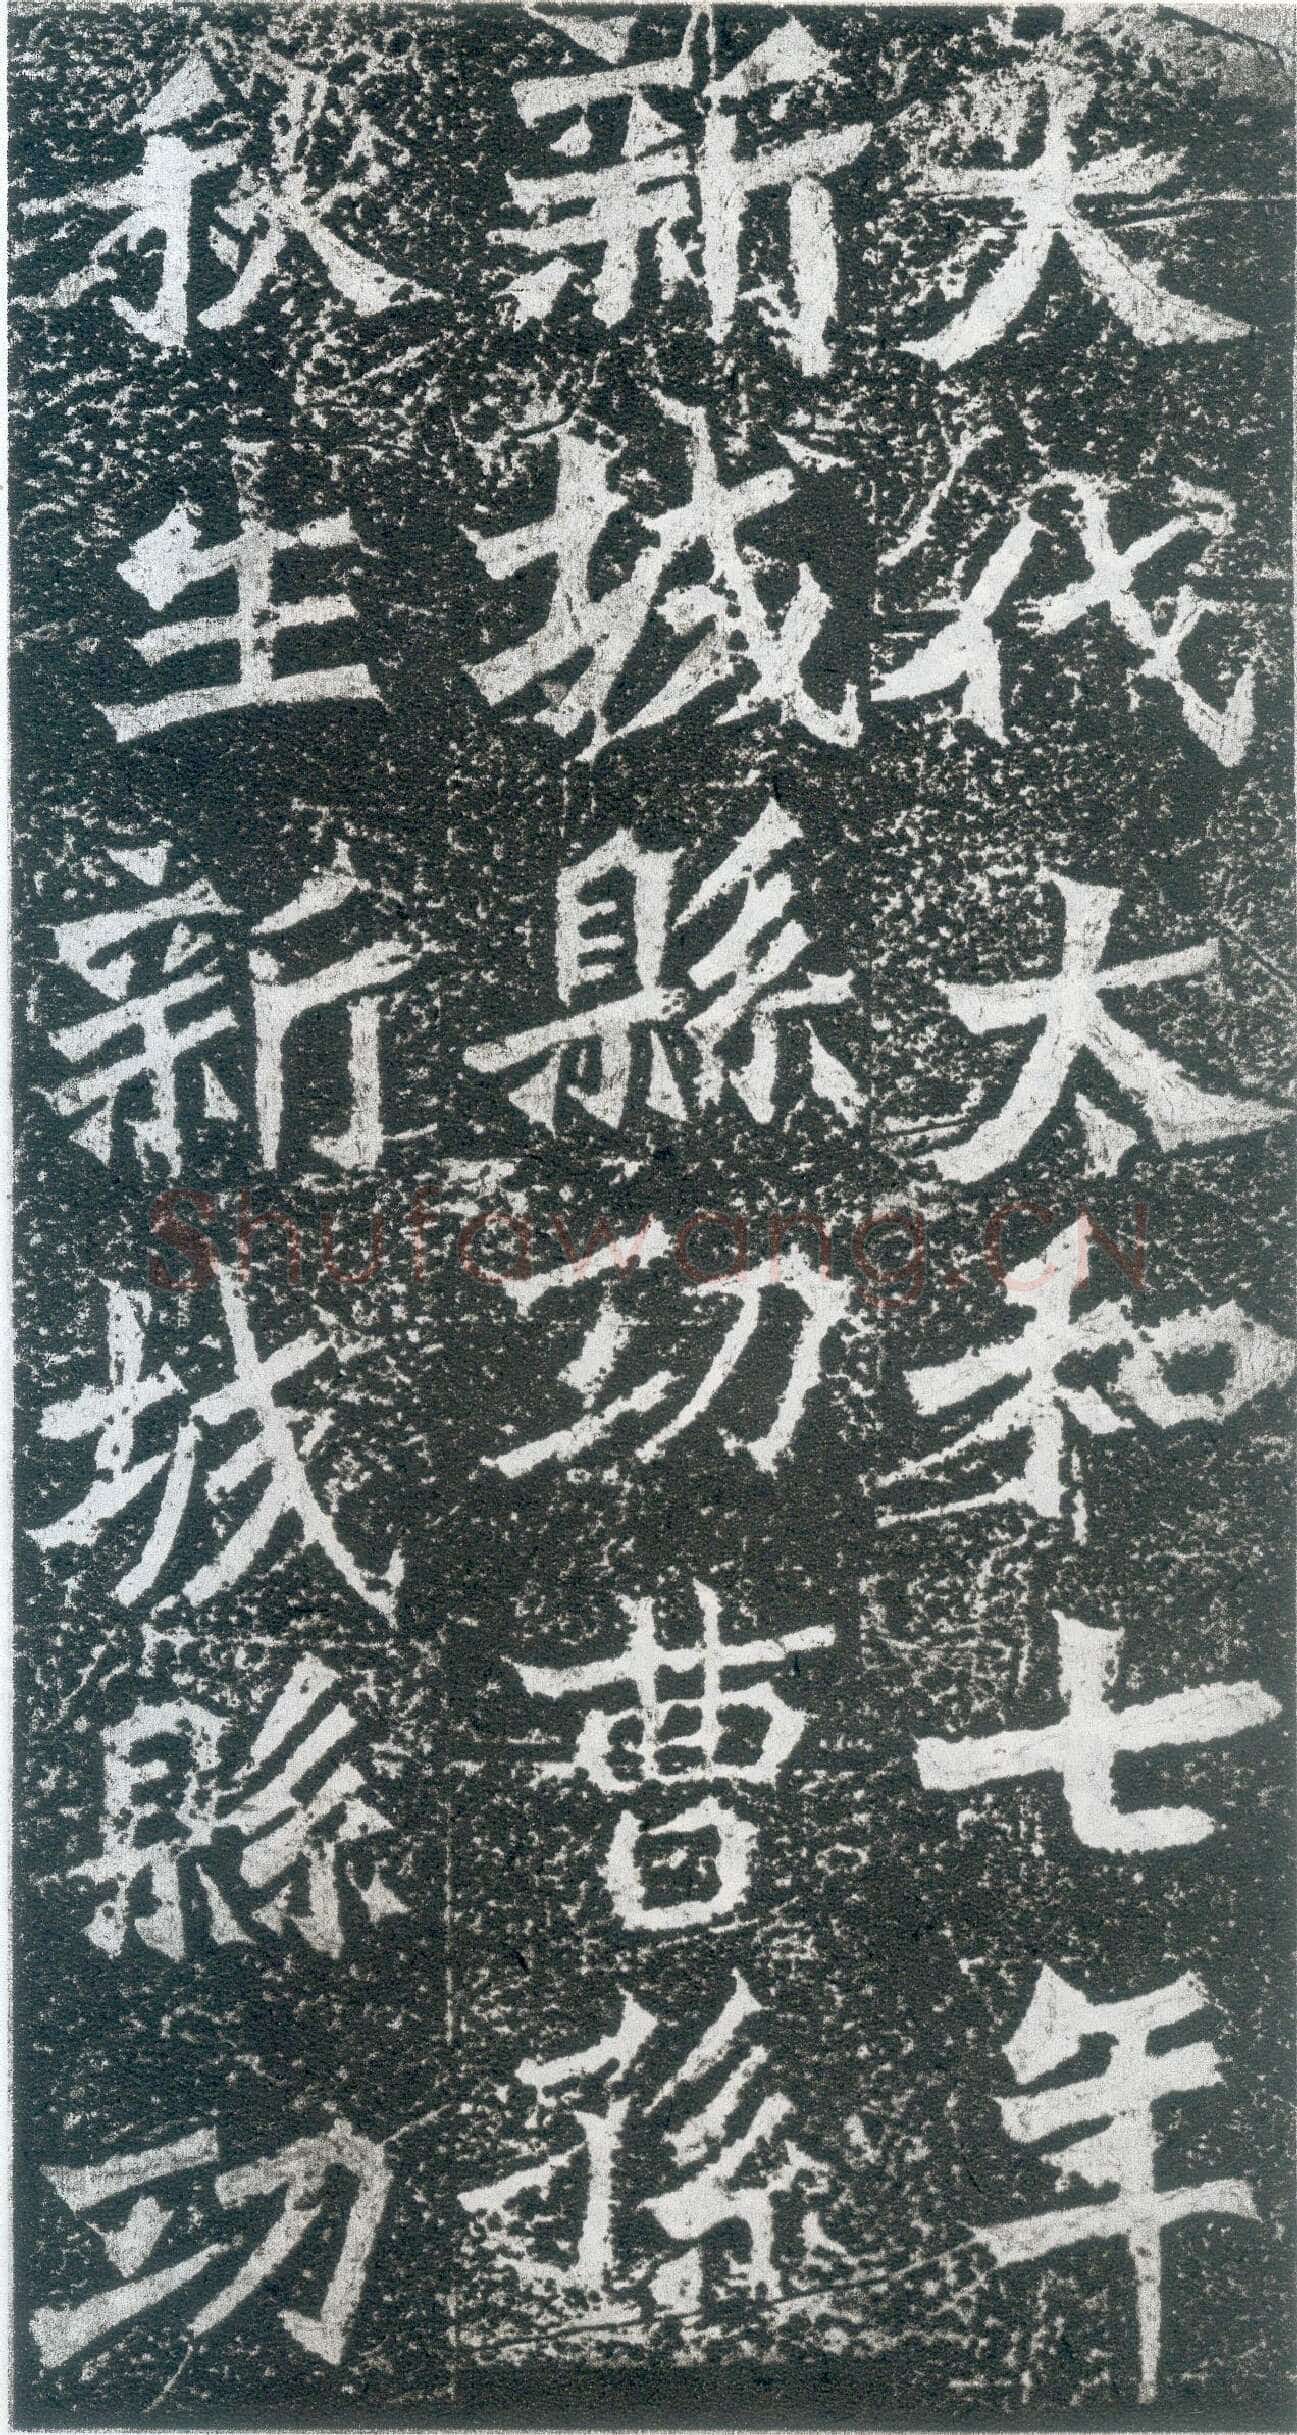 大代太和七年
新城縣功曹孫
秋生新城縣功
Shufawang.CN